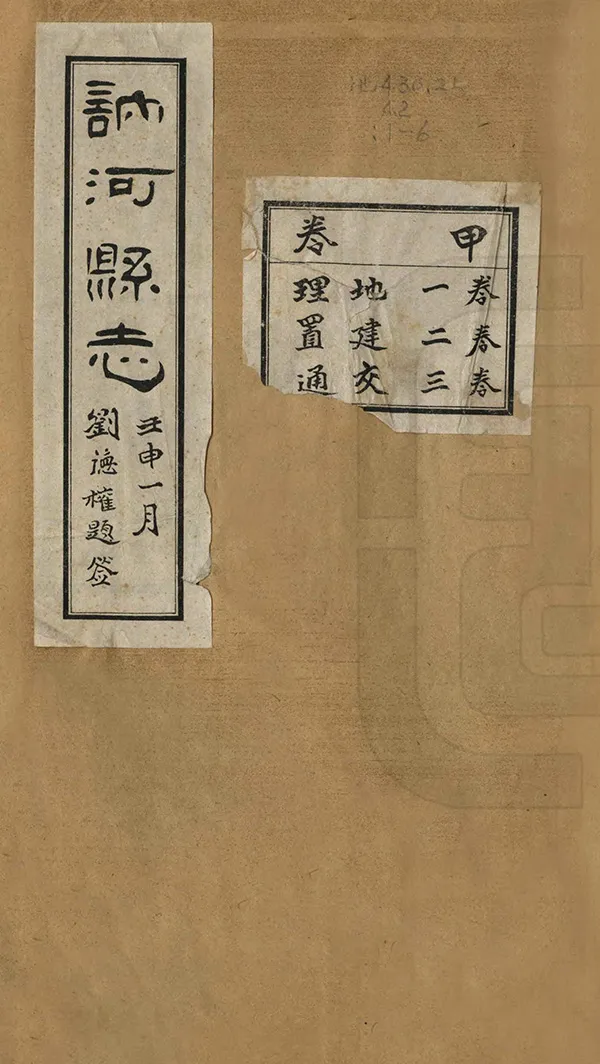 訥河縣志
壬申一月
劉德權題簽
甲 卷
卷一 地理
卷二 建置
卷三 交通